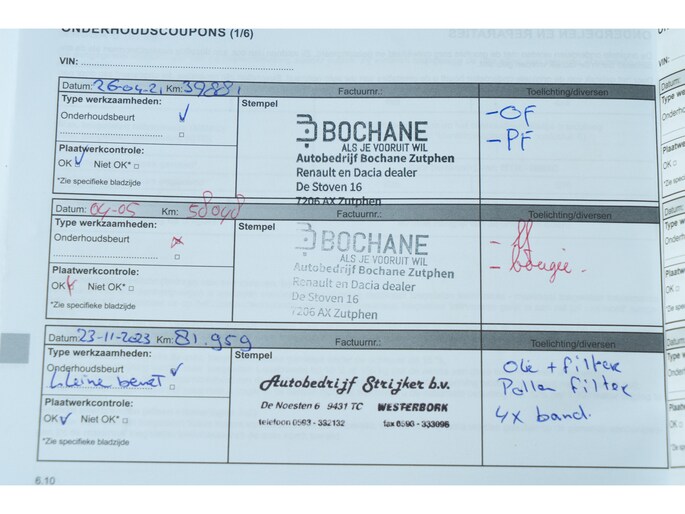 ONDERHOUDSCOUPONS (1/6)
VIN:
Datum: 26-04-21 Km: 39881
Factuurnr.:
Toelichting/diversen
Type werkzaamheden:
Onderhoudsbeurt
Stempel
BOCHANE
ALS JE VOORUIT WIL
Autobedrijf Bochane Zutphen
Renault en Dacia dealer
De Stoven 16
7206 AX Zutphen
- OF
- PF
Plaatwerkcontrole:
OK Niet OK*
*Zie specifieke bladzijde
Datum: 04-05 Km: 58048
Factuurnr.:
Toelichting/diversen
Type werkzaamheden:
Onderhoudsbeurt
Stempel
BOCHANE
ALS JE VOORUIT WIL
Autobedrijf Bochane Zutphen
Renault en Dacia dealer
De Stoven 16
7206 AX Zutphen
- ff
- bougie.
Plaatwerkcontrole:
OK Niet OK*
*Zie specifieke bladzijde
Datum: 23-11-2023 Km: 81.959
Factuurnr.:
Toelichting/diversen
Type werkzaamheden:
Onderhoudsbeurt
kleine beurt
Stempel
Autobedrijf Strijker b.v.
De Noesten 6 9431 TC WESTERBORK
telefoon 0593 - 332132 fax 0590 - 333096
Olie + filter
Pollen filter
4x band.
Plaatwerkcontrole:
OK Niet OK*
*Zie specifieke bladzijde
6.10